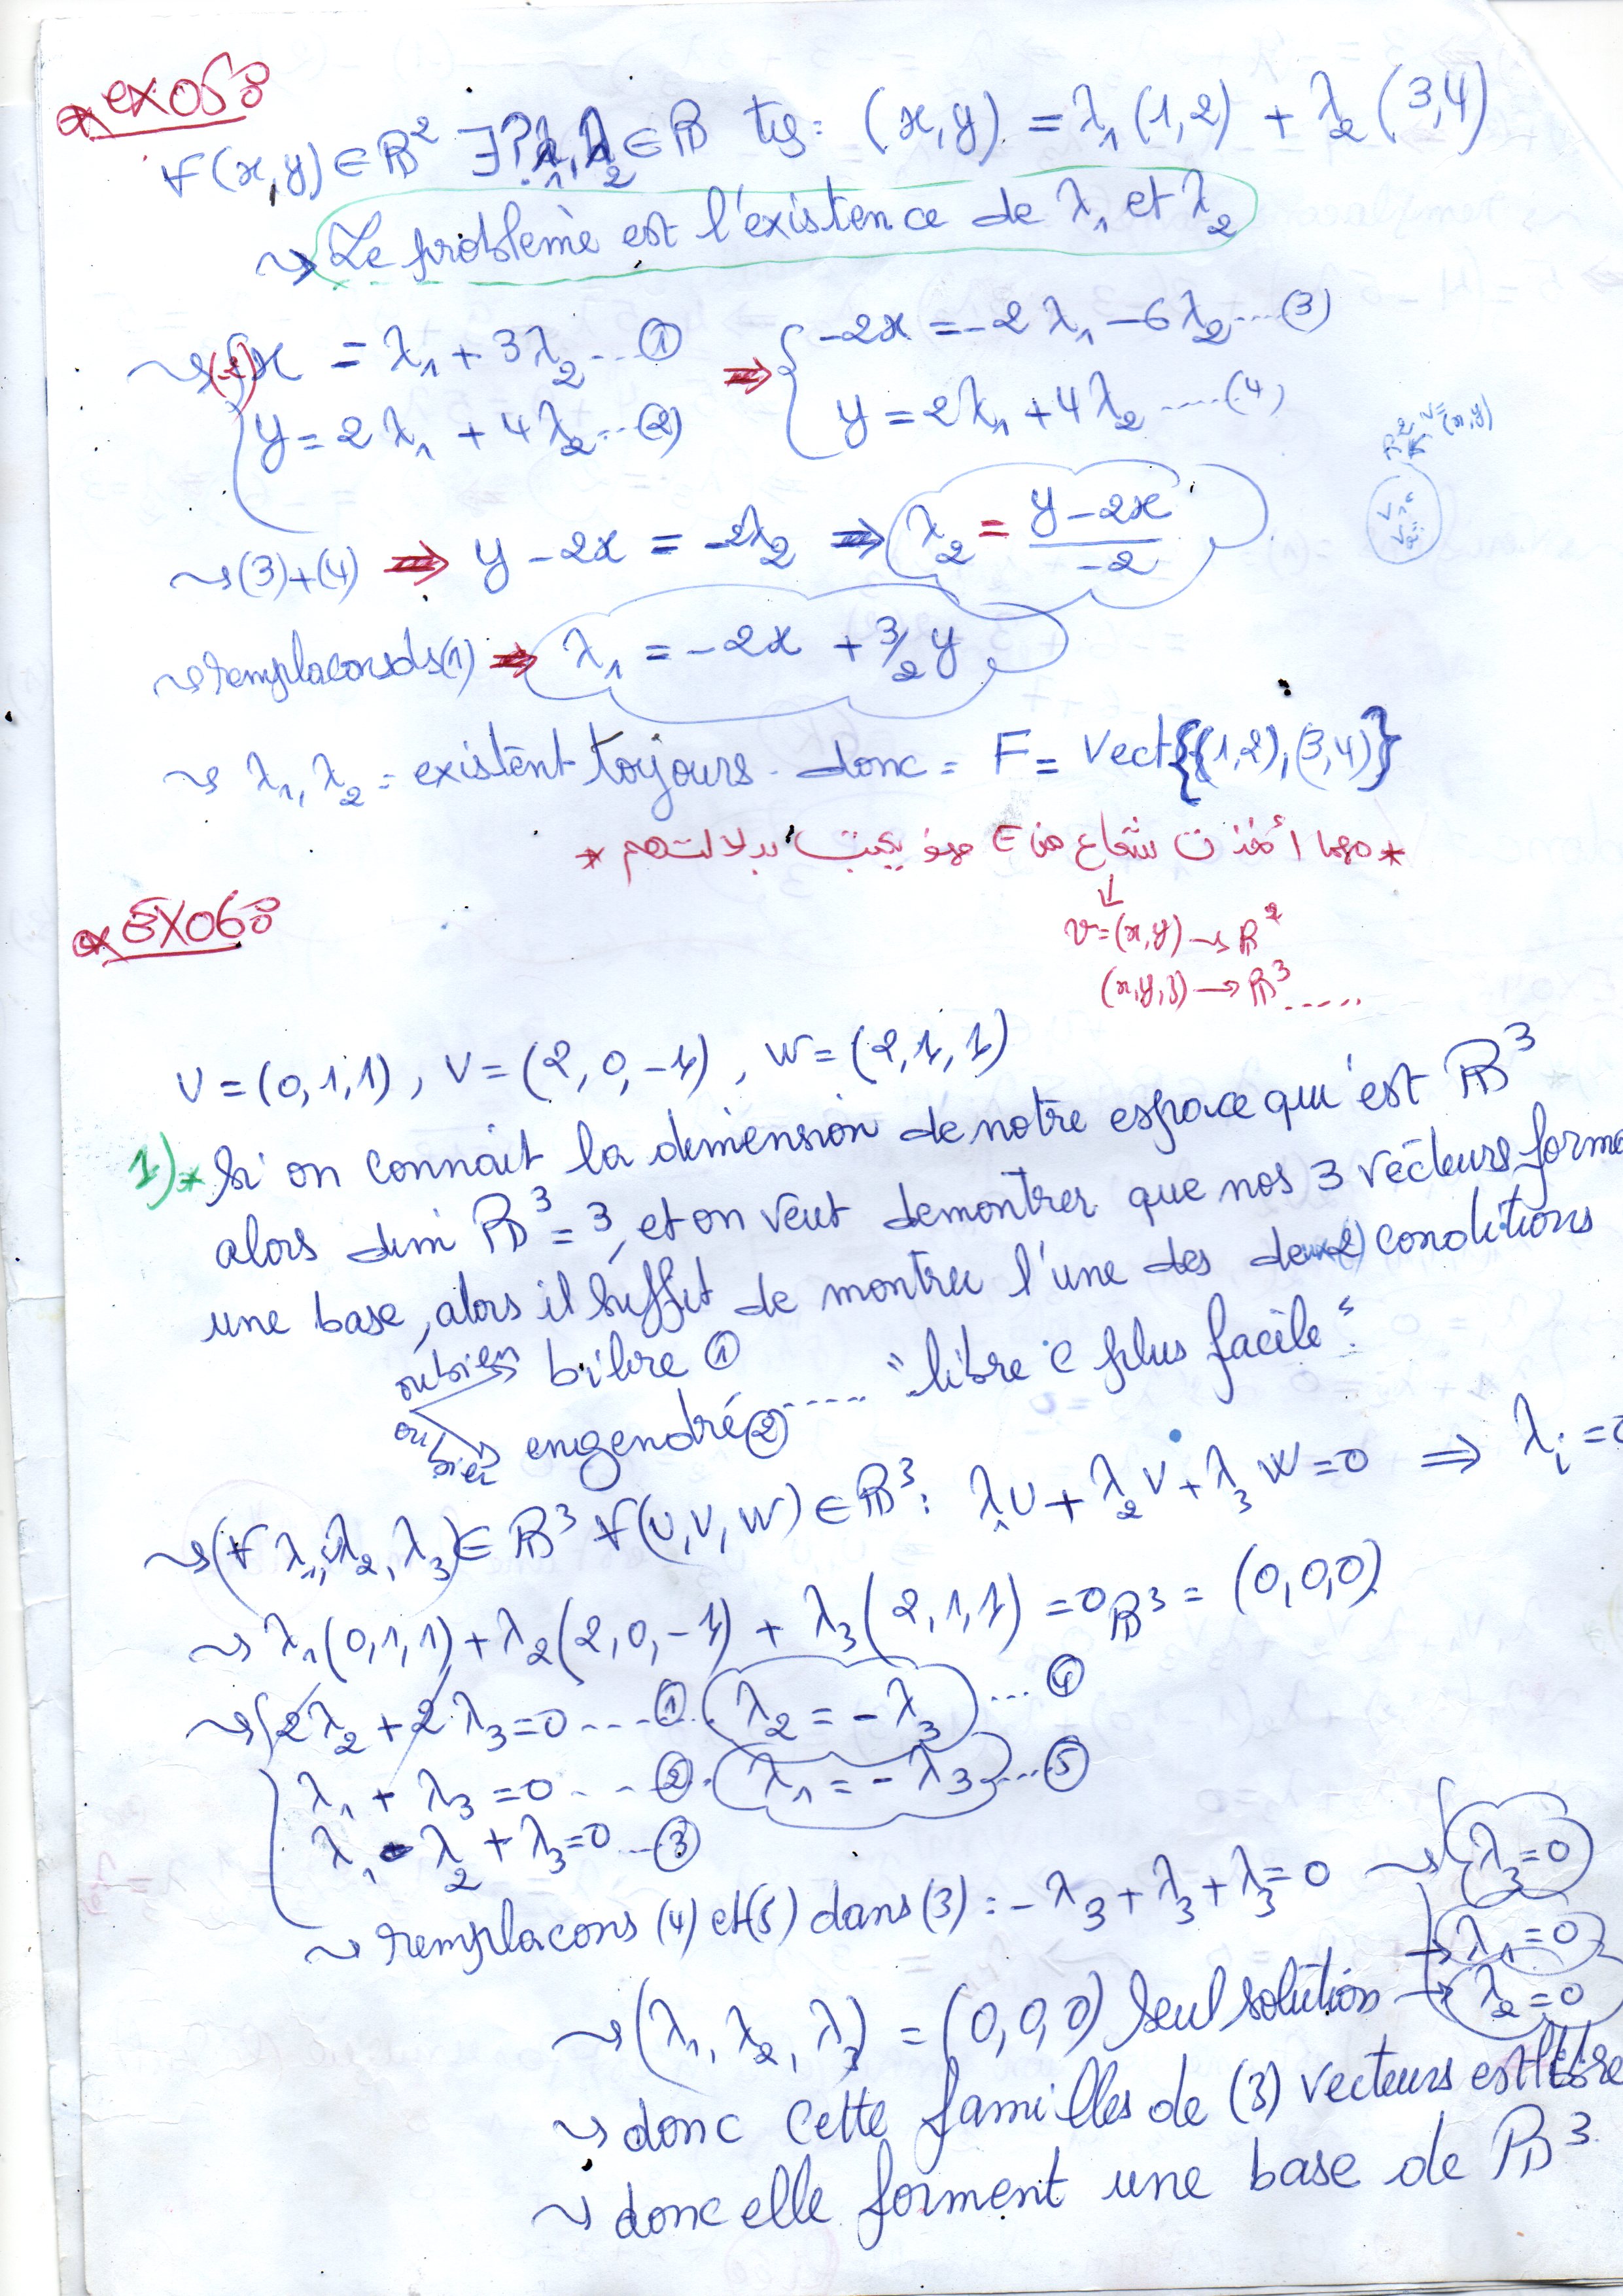 * exo5:
∀(x,y)∈ℝ² ∃? λ₁,λ₂∈ℝ tq: (x,y) = λ₁(1,2) + λ₂(3,4)
⇝ Le problème est l'existence de λ₁ et λ₂
⇝ (-2) { x = λ₁ + 3λ₂ ... ① ⇒ { -2x = -2λ₁ - 6λ₂ .... (3)
y = 2λ₁ + 4λ₂ ... (2) y = 2λ₁ + 4λ₂ ..... (4)
ℝ² v=(x,y)
⇝ (3)+(4) ⇒ y - 2x = -2λ₂ ⇒ λ₂ = (y-2x)/-2
⇝ remplaconsds(1) ⇒ λ₁ = -2x + 3/2 y
⇝ λ₁, λ₂ = existent toujours. donc = F = Vect{(1,2),(3,4)}
* مهما أخذت شعاع من E سوف يكتب بدلالتهم *
↓
v=(x,y) → ℝ²
(x,y,z) → ℝ³ .....
* EXO6:
U = (0,1,1), V = (2,0,-1), W = (2,1,1)
1) * Si on connait la demension de notre espace qui est ℝ³
alors dim ℝ³ = 3, et on veut demontrer que nos 3 vecteurs forme
une base, alors il suffit de montrer l'une des deux(2) conditions
oubien bilire ①
ou bien engendré② ..... "libre c plus facile".
⇝ (∀ λ₁, λ₂, λ₃)∈ℝ³ ∀(U,V,W)∈ℝ³: λ₁U + λ₂V + λ₃W = 0 ⇒ λᵢ = 0
⇝ λ₁(0,1,1) + λ₂(2,0,-1) + λ₃(2,1,1) = 0ℝ³ = (0,0,0)
⇝ { 2λ₂ + 2λ₃ = 0 .... ① λ₂ = -λ₃ ... ④
λ₁ + λ₃ = 0 ... ② λ₁ = -λ₃ ... ⑤
λ₁ - λ₂ + λ₃ = 0 ... ③
⇝ remplacons (4) et(5) dans (3): -λ₃ + λ₃ + λ₃ = 0 ⇝ λ₃ = 0
→ λ₁ = 0
⇝ (λ₁, λ₂, λ₃) = (0,0,0) seul solution → λ₂ = 0
⇝ donc cette familles de (3) vecteurs est libre
⇝ donc elle forment une base de ℝ³.